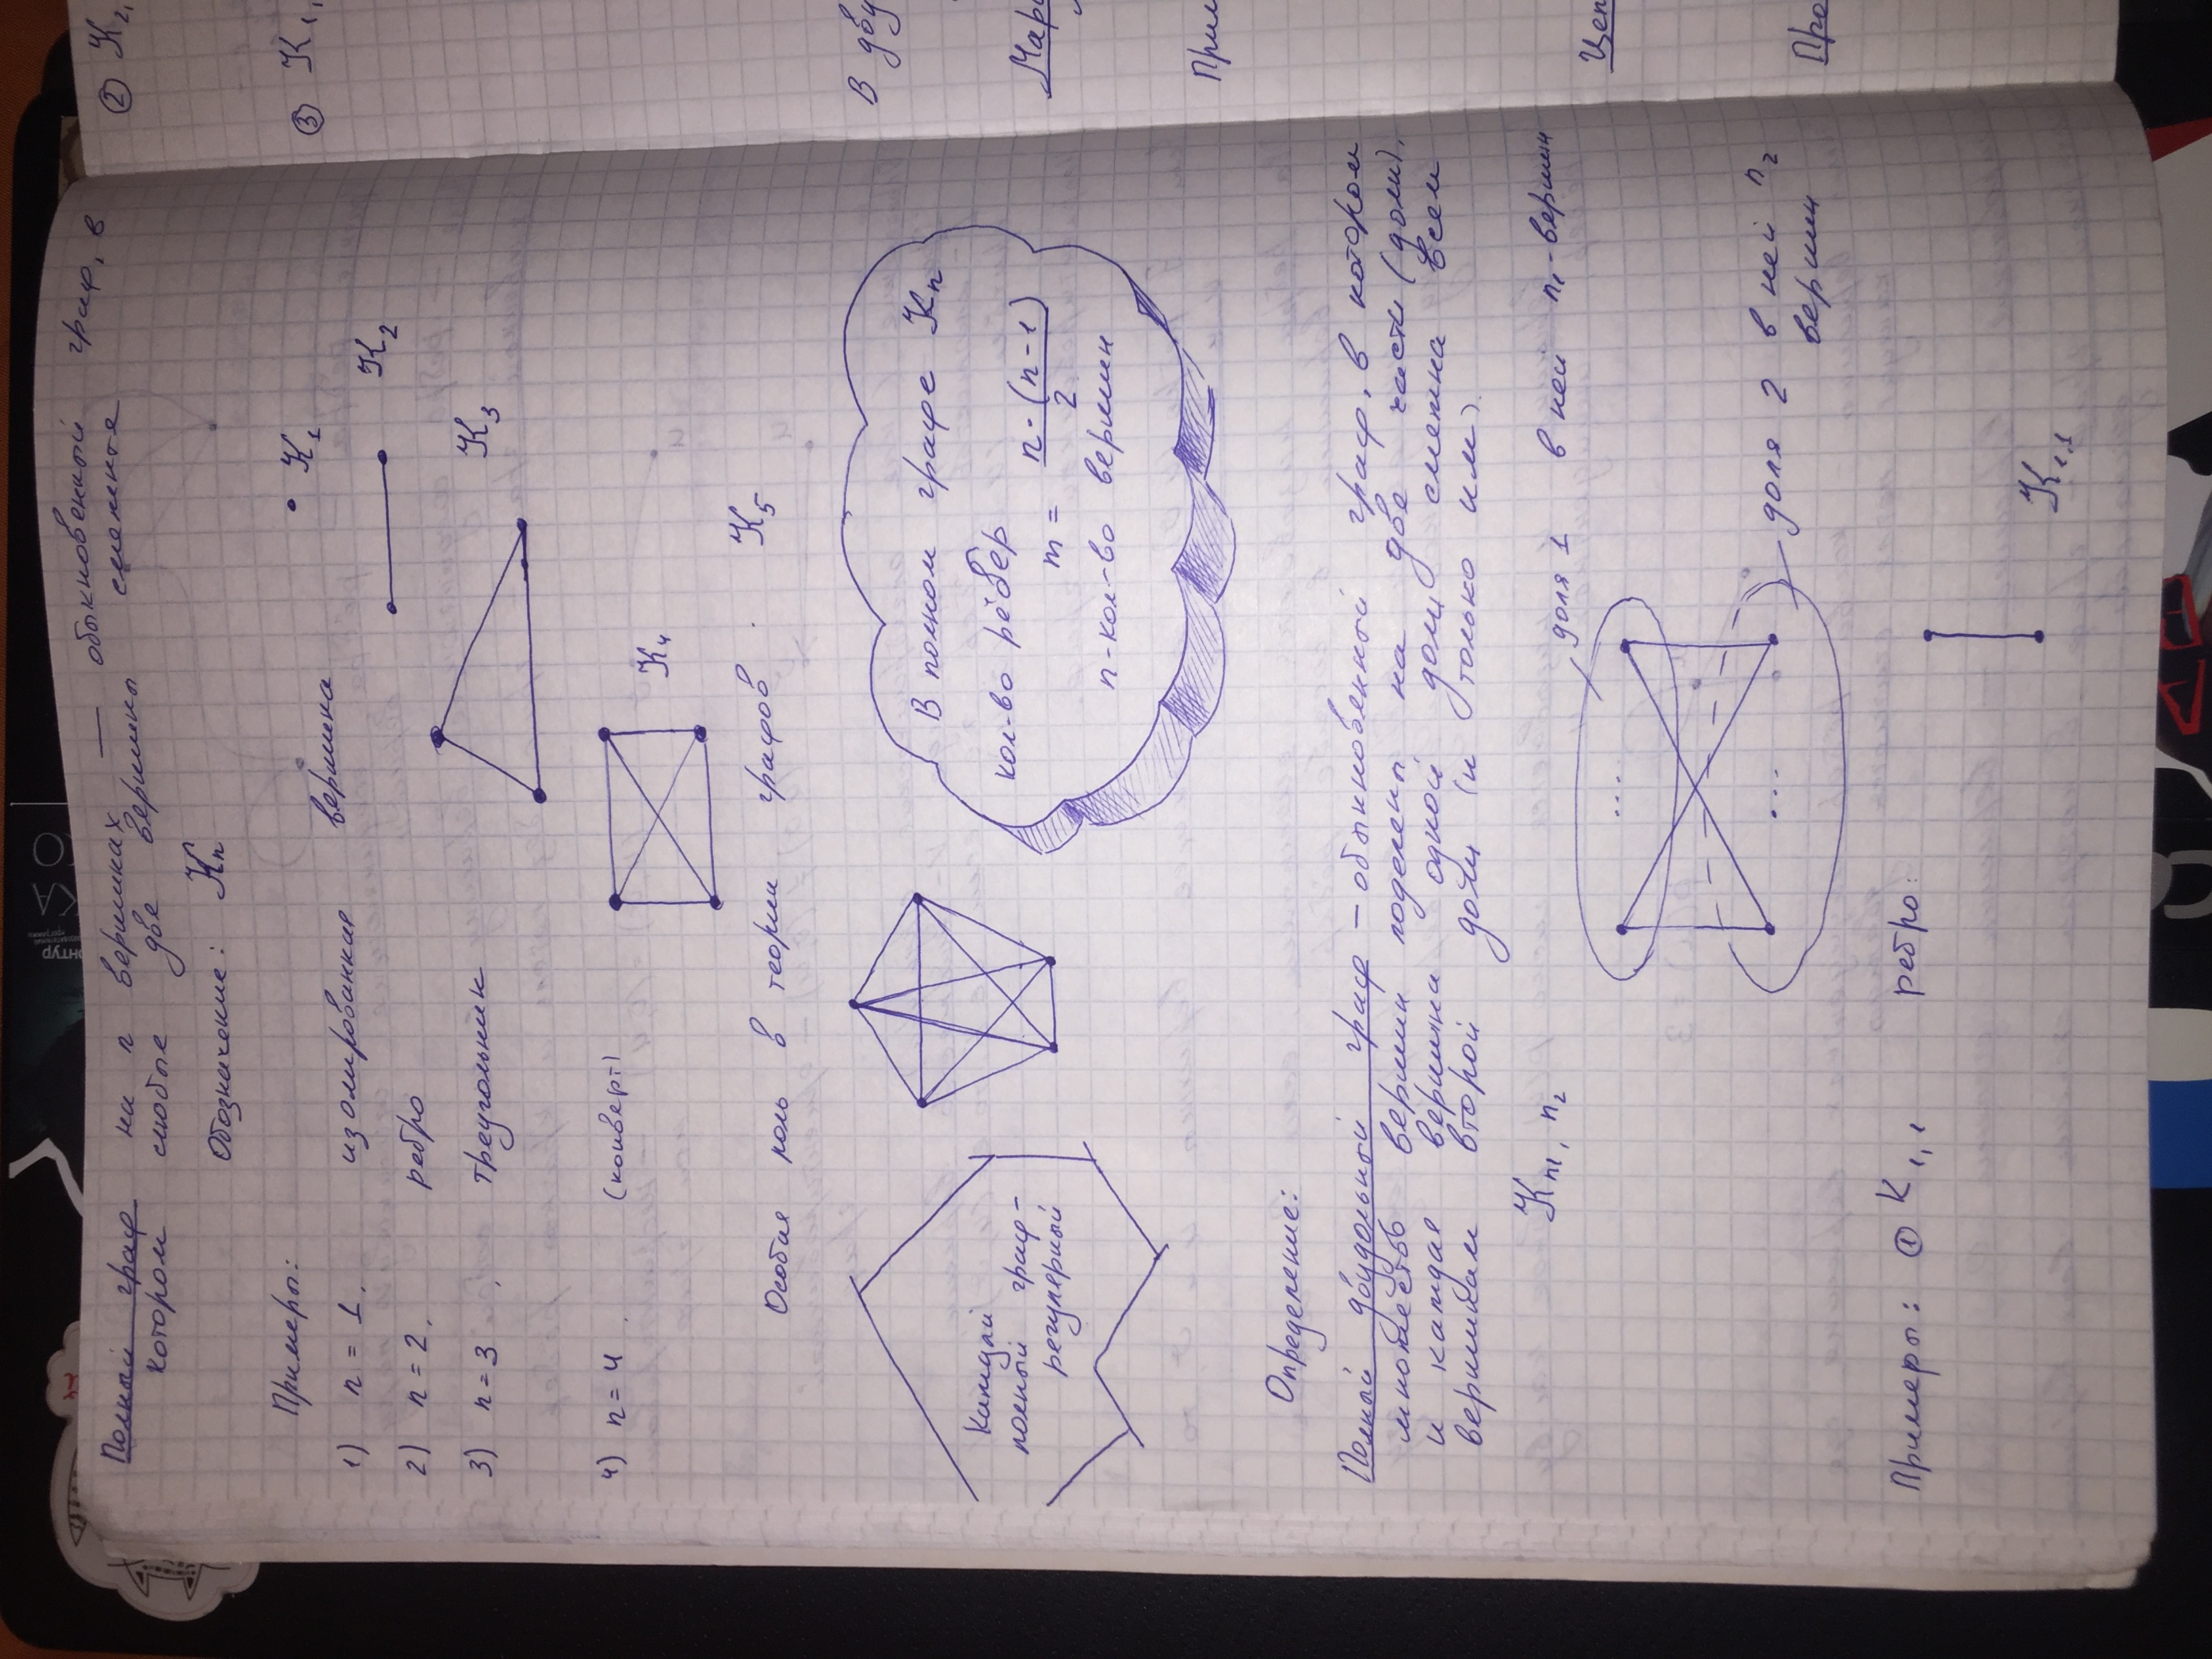 Полный граф на n вершинах — обыкновенный граф, в
котором любые две вершины смежнте
Обозначение: Kn
Примеры:
1) n = 1. изолированная вершина K1
2) n = 2, ребро K2
3) n = 3, треугольник K3
4) n = 4. (конверт) K4
Особая роль в теории графов K5
Каждый
полный граф-
регулерный
В полном графе Kn
кол-во рёбер
m = n·(n-1)/2
n-кол-во вершин
Определение:
Полный двудольный граф – обыкновенный граф, в котором
множество вершин поделены на две части (доли),
и каждая вершина одной доли смежна всем
вершинам второй доли (и только им).
Kn1, n2
доля 1 в ней n1-вершин
доля 2 в ней n2
вершин
Примеры: ① K1,1 ребро:
K1,1
② K2,
③ K1,
В дву
Мар
При
Цеп
Про
контур
КА
КО